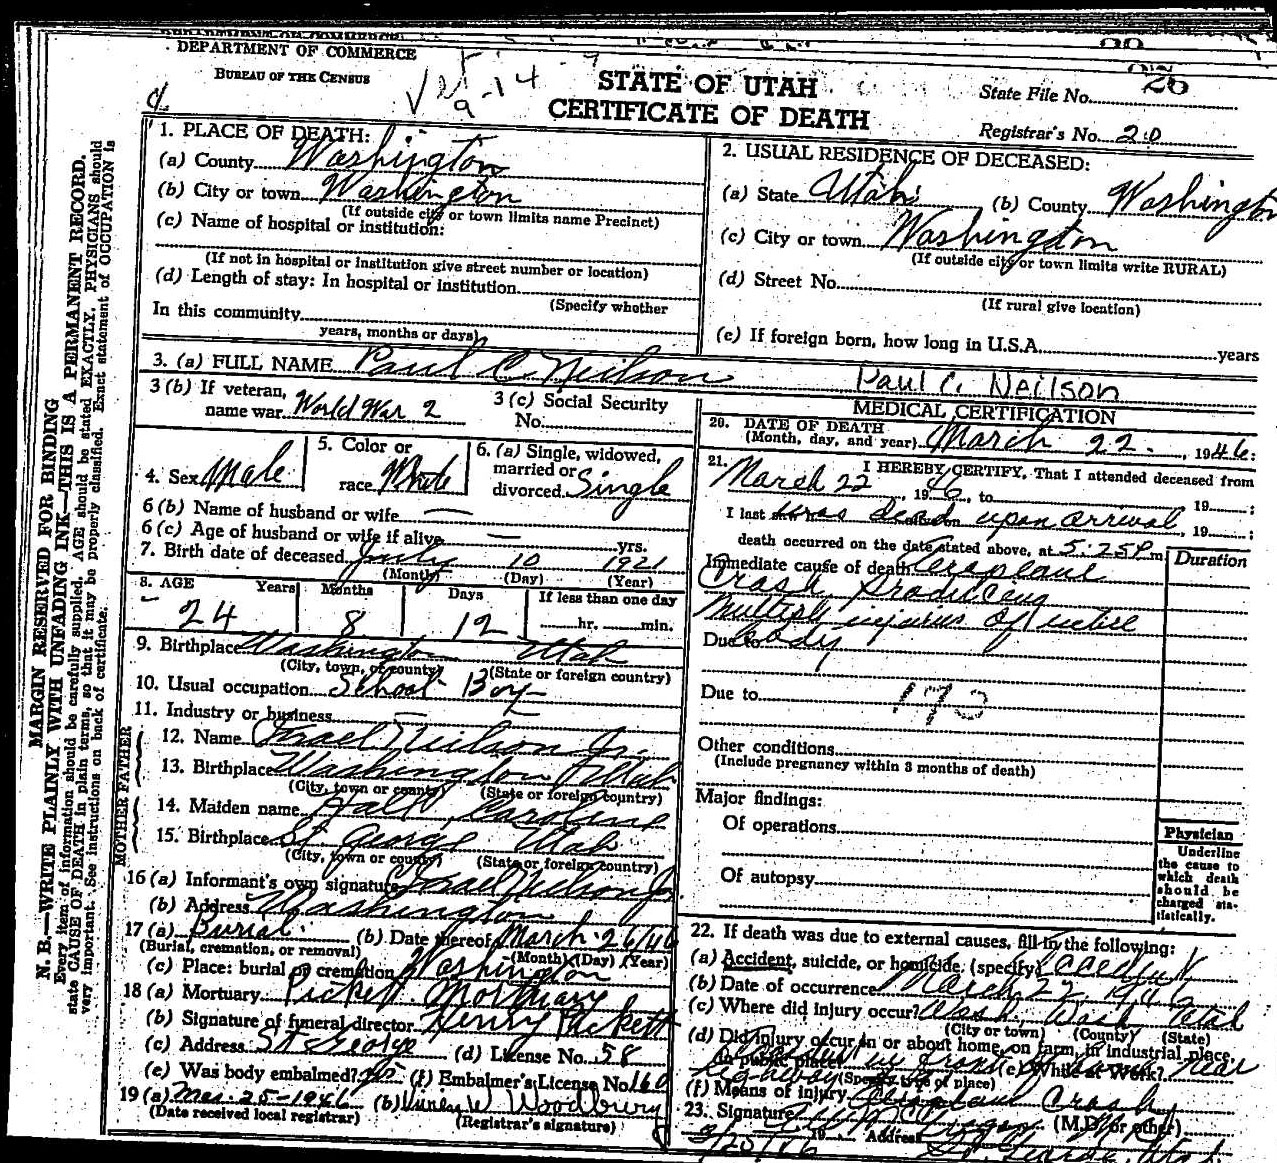 DEPARTMENT OF COMMERCE
BUREAU OF THE CENSUS
9-14
STATE OF UTAH
CERTIFICATE OF DEATH
State File No. 26
Registrar's No. 20
MARGIN RESERVED FOR BINDING
N. B.—WRITE PLAINLY WITH UNFADING INK—THIS IS A PERMANENT RECORD.
Every item of information should be carefully supplied. AGE should be stated EXACTLY. PHYSICIANS should
state CAUSE OF DEATH in plain terms, so that it may be properly classified. Exact statement of OCCUPATION is
very important. See instructions on back of certificate.
1. PLACE OF DEATH:
(a) County Washington
(b) City or town Washington
(If outside city or town limits name Precinct)
(c) Name of hospital or institution:
(If not in hospital or institution give street number or location)
(d) Length of stay: In hospital or institution
(Specify whether
In this community
years, months or days)
2. USUAL RESIDENCE OF DECEASED:
(a) State Utah (b) County Washington
(c) City or town Washington
(If outside city or town limits write RURAL)
(d) Street No.
(If rural give location)
(e) If foreign born, how long in U.S.A. years
3. (a) FULL NAME Paul C. Neilson Paul C. Neilson
3 (b) If veteran, name war World War 2
3 (c) Social Security No.
4. Sex Male
5. Color or race White
6. (a) Single, widowed, married or divorced Single
6 (b) Name of husband or wife —
6 (c) Age of husband or wife if alive — yrs.
7. Birth date of deceased July 10 1921
(Month) (Day) (Year)
8. AGE Years Months Days If less than one day
24 8 12 hr. min.
9. Birthplace Washington Utah
(City, town, or county) (State or foreign country)
10. Usual occupation School Boy
11. Industry or business —
FATHER
12. Name Israel Neilson Jr.
13. Birthplace Washington Utah
(City, town or county) (State or foreign country)
MOTHER
14. Maiden name Hall Caroline
15. Birthplace St George Utah
(City, town or county) (State or foreign country)
16 (a) Informant's own signature Israel Neilson Jr
(b) Address Washington
17 (a) Burial (b) Date thereof March 26/46
(Burial, cremation, or removal) (Month) (Day) (Year)
(c) Place: burial or cremation Washington
18 (a) Mortuary Pickett Mortuary
(b) Signature of funeral director Henry Pickett
(c) Address St George (d) License No. 58
(e) Was body embalmed? yes (f) Embalmer's License No. 160
19 (a) Mar. 25-1946 (b) Woodbury
(Date received local registrar) (Registrar's signature)
MEDICAL CERTIFICATION
20. DATE OF DEATH
(Month, day, and year) March 22, 1946:
21. I HEREBY CERTIFY, That I attended deceased from
March 22, 1946, to 19 ;
I last saw h was dead upon arrival, 19 ;
death occurred on the date stated above, at 5:25 P m
Duration
Immediate cause of death Aeroplane
Crash producing
multiple injuries of entire
Due to body
Due to 173
Other conditions
(Include pregnancy within 3 months of death)
Major findings:
Of operations
Of autopsy
Physician
Underline
the cause to
which death
should be
charged sta-
tistically.
22. If death was due to external causes, fill in the following:
(a) Accident, suicide, or homicide (specify) Accident
(b) Date of occurrence March 22, 1946
(c) Where did injury occur? Wash. Wash Utah
(City or town) (County) (State)
(d) Did injury occur in or about home, on farm, in industrial place,
in public place? in front of home near
highway (Specify type of place) (e) While at Work?
(f) Means of injury Aeroplane Crash
23. Signature (M.D. or other)
3/25/46 19 Address St. George, Utah